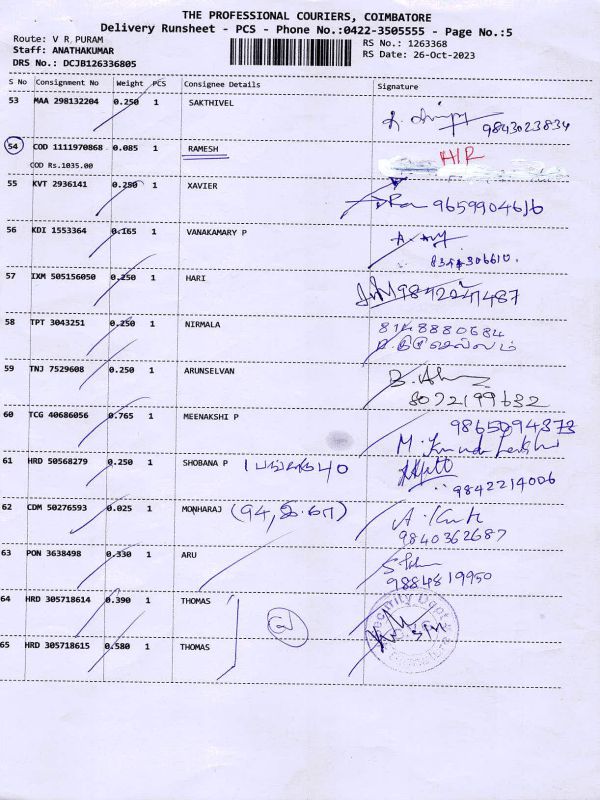 THE PROFESSIONAL COURIERS, COIMBATORE
Delivery Runsheet - PCS - Phone No.:0422-3505555 - Page No.:5
Route: V R PURAM
RS No.: 1263368
Staff: ANATHAKUMAR
RS Date: 26-Oct-2023
DRS No.: DCJB126336805
S No Consignment No Weight PCS Consignee Details Signature
53 MAA 298132204 0.250 1 SAKTHIVEL
9843023834
54 COD 1111970868 0.085 1 RAMESH
COD Rs.1035.00
55 KVT 2936141 0.250 1 XAVIER
9659904616
56 KDI 1553364 0.165 1 VANAKAMARY P
57 IXM 505156050 0.250 1 HARI
58 TPT 3043251 0.250 1 NIRMALA
8148880684
59 TNJ 7529608 0.250 1 ARUNSELVAN
8072199632
60 TCG 40686056 0.765 1 MEENAKSHI P
9865094373
61 HRD 50568279 0.250 1 SHOBANA P
9842214006
62 CDM 50276593 0.025 1 MONHARAJ
9840362687
63 PON 3638498 0.330 1 ARU
9884819950
64 HRD 305718614 0.390 1 THOMAS
65 HRD 305718615 0.580 1 THOMAS